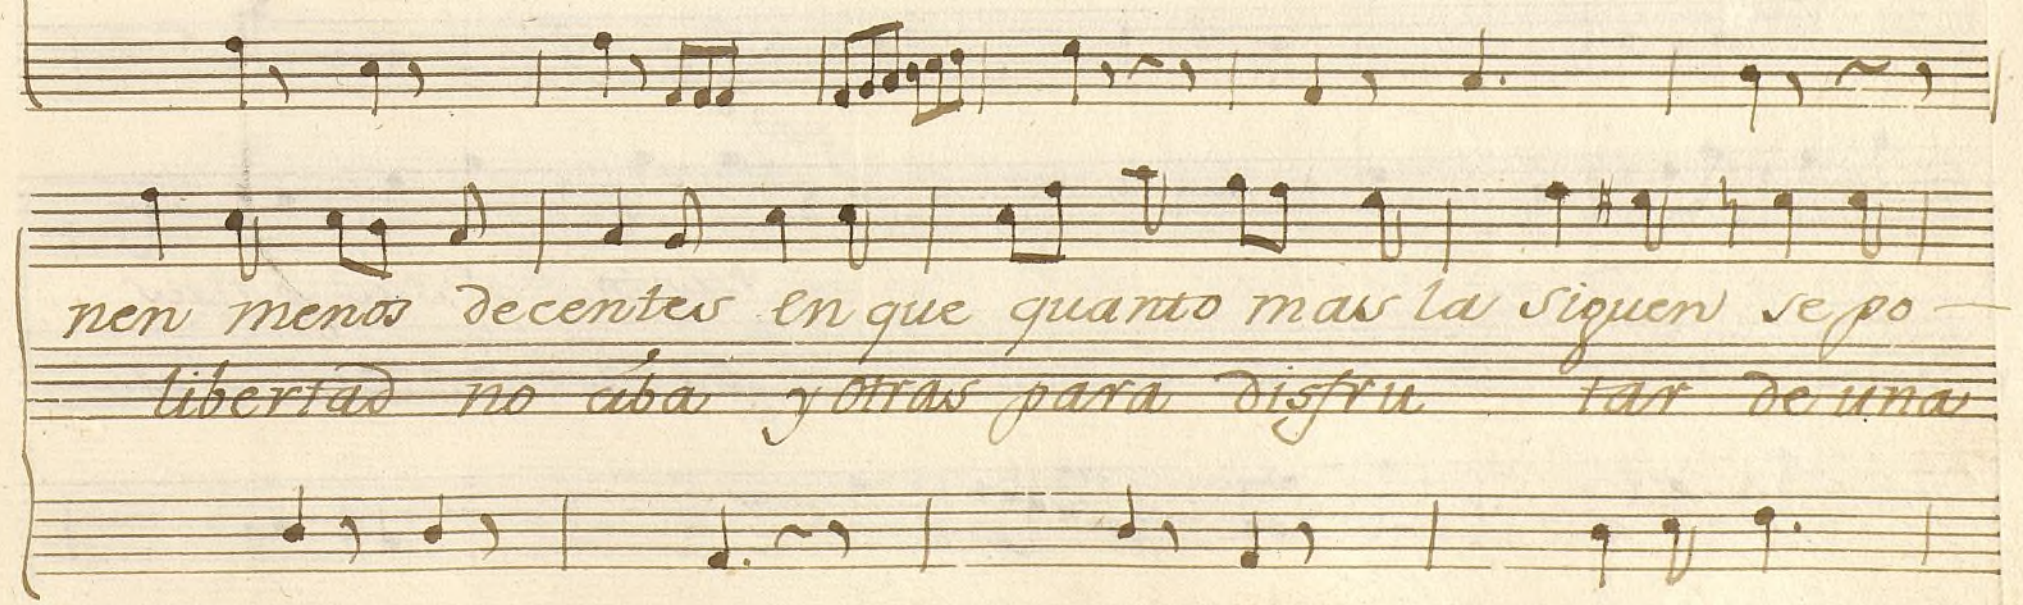 nen menos decentes en que quanto mas la siguen se po
libertad no iba y otras para disfru tar de una